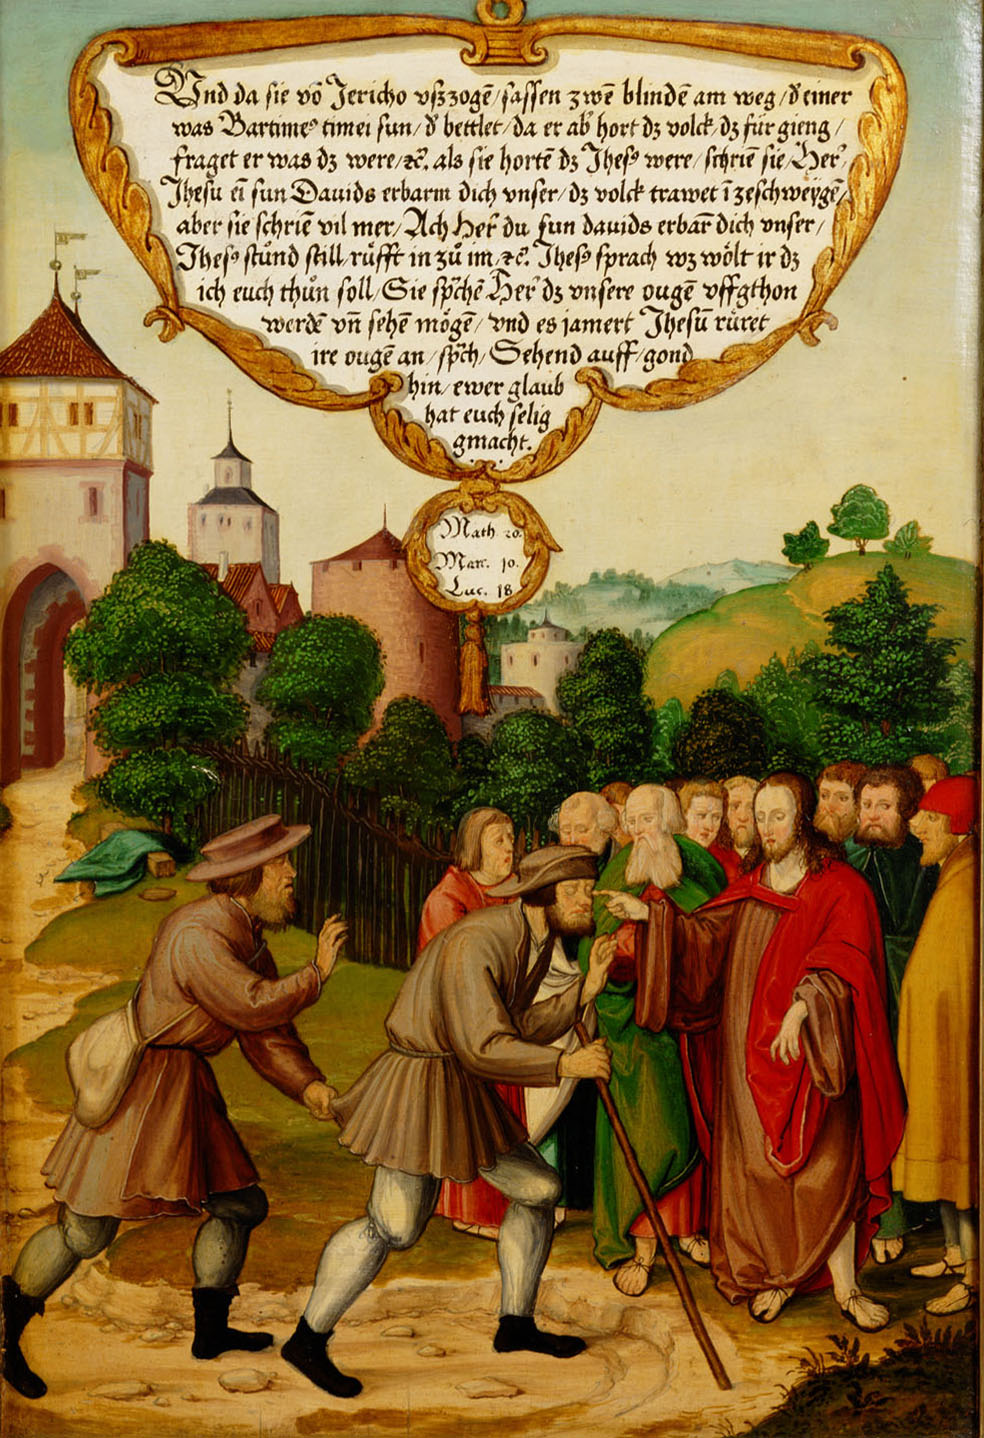 Vnd da sie vō Jericho vszzogē/sassen zwē blindē am weg/d̓ einer
was Bartime⁹ timei sun/d̓ bettlet/da er ab̓ hort dz volck/dz für gieng/
fraget er was dz were/ꝛc̄. als sie hortē dz Jhes⁹ were/schriē sie/Her̓/
Jhesu eī sun Dauids erbarm dich vnser/dz volck trawet ī zeschweÿgē/
aber sie schriē vil mer/Ach Her̓ du sun dauids erbar̄ dich vnser/
Jhes⁹ stůnd still/růfft in zů im/ꝛc̄. Jhes⁹ sprach wz wölt ir dz
ich euch thůn soll/Sie sp̓chē Her̓ dz vnsere ougē vffgthon
werdē vn̄ sehē mögē/vnd es iamert Jhesū rüret
ire ougē an/sp̓ch/Sehend auff/gond
hin/ewer glaub
hat euch selig
gmacht.
Math. 20.
Marc. 10.
Luc. 18